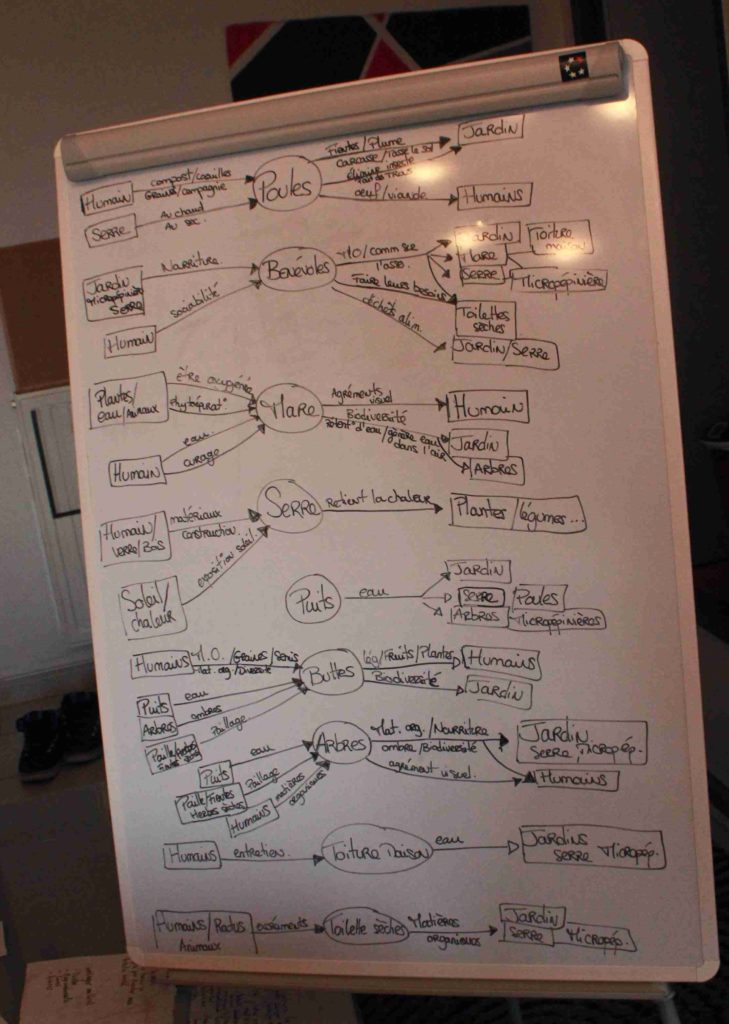 Fientes/Plume
Carcasse/Tasse le sol
élimine insecte
Jardin
compost/coquilles
Humain
Grains/compagnie
Poules
oeuf/viande
Humains
Serre
Au chaud
Au sec.
Jardin
Toiture
maison
Jardin
Micropépinière
Serre
Nourriture
Bénévoles
MO/comm sur
l'asso.
Mare
Serre
Micropépinière
sociabilité
Faire leurs besoins
Toilettes
sèches
Humain
déchets alim.
Jardin/Serre
Plantes/
eau/Animaux
être oxygénée
phytoépurat°
Mare
Agréments
visuel
Humain
Biodiversité
Rétent° d'eau/génère eau
dans l'air
Jardin
Arbres
Humain
eau
curage
Humain/
verre/Bois
matériaux
construction
Serre
Retient la chaleur
Plantes/légumes...
Soleil/
chaleur
exposit° soleil
Puits
eau
Jardin
Serre
Poules
Arbres
Micropépinières
Humains
M.O./Graines/Semis
Mat. org./Diversité
Buttes
lég/Fruits/Plantes
Humains
Biodiversité
Jardin
Puits
Arbres
eau
ombres
Paillage
Arbres
Mat. org./Nourriture
ombre/Biodiversité
agrément visuel
Jardin
Serre, Micropép.
Humains
Puits
eau
Paille/Fientes
Herbes sèches
Paillage
Humains
matières
organiques
Humains
entretien
Toiture Maison
eau
Jardins
Serre Micropép.
Humains/
Animaux
excréments
Toilette sèches
Matières
organiques
Jardin
Serre
Micropép.